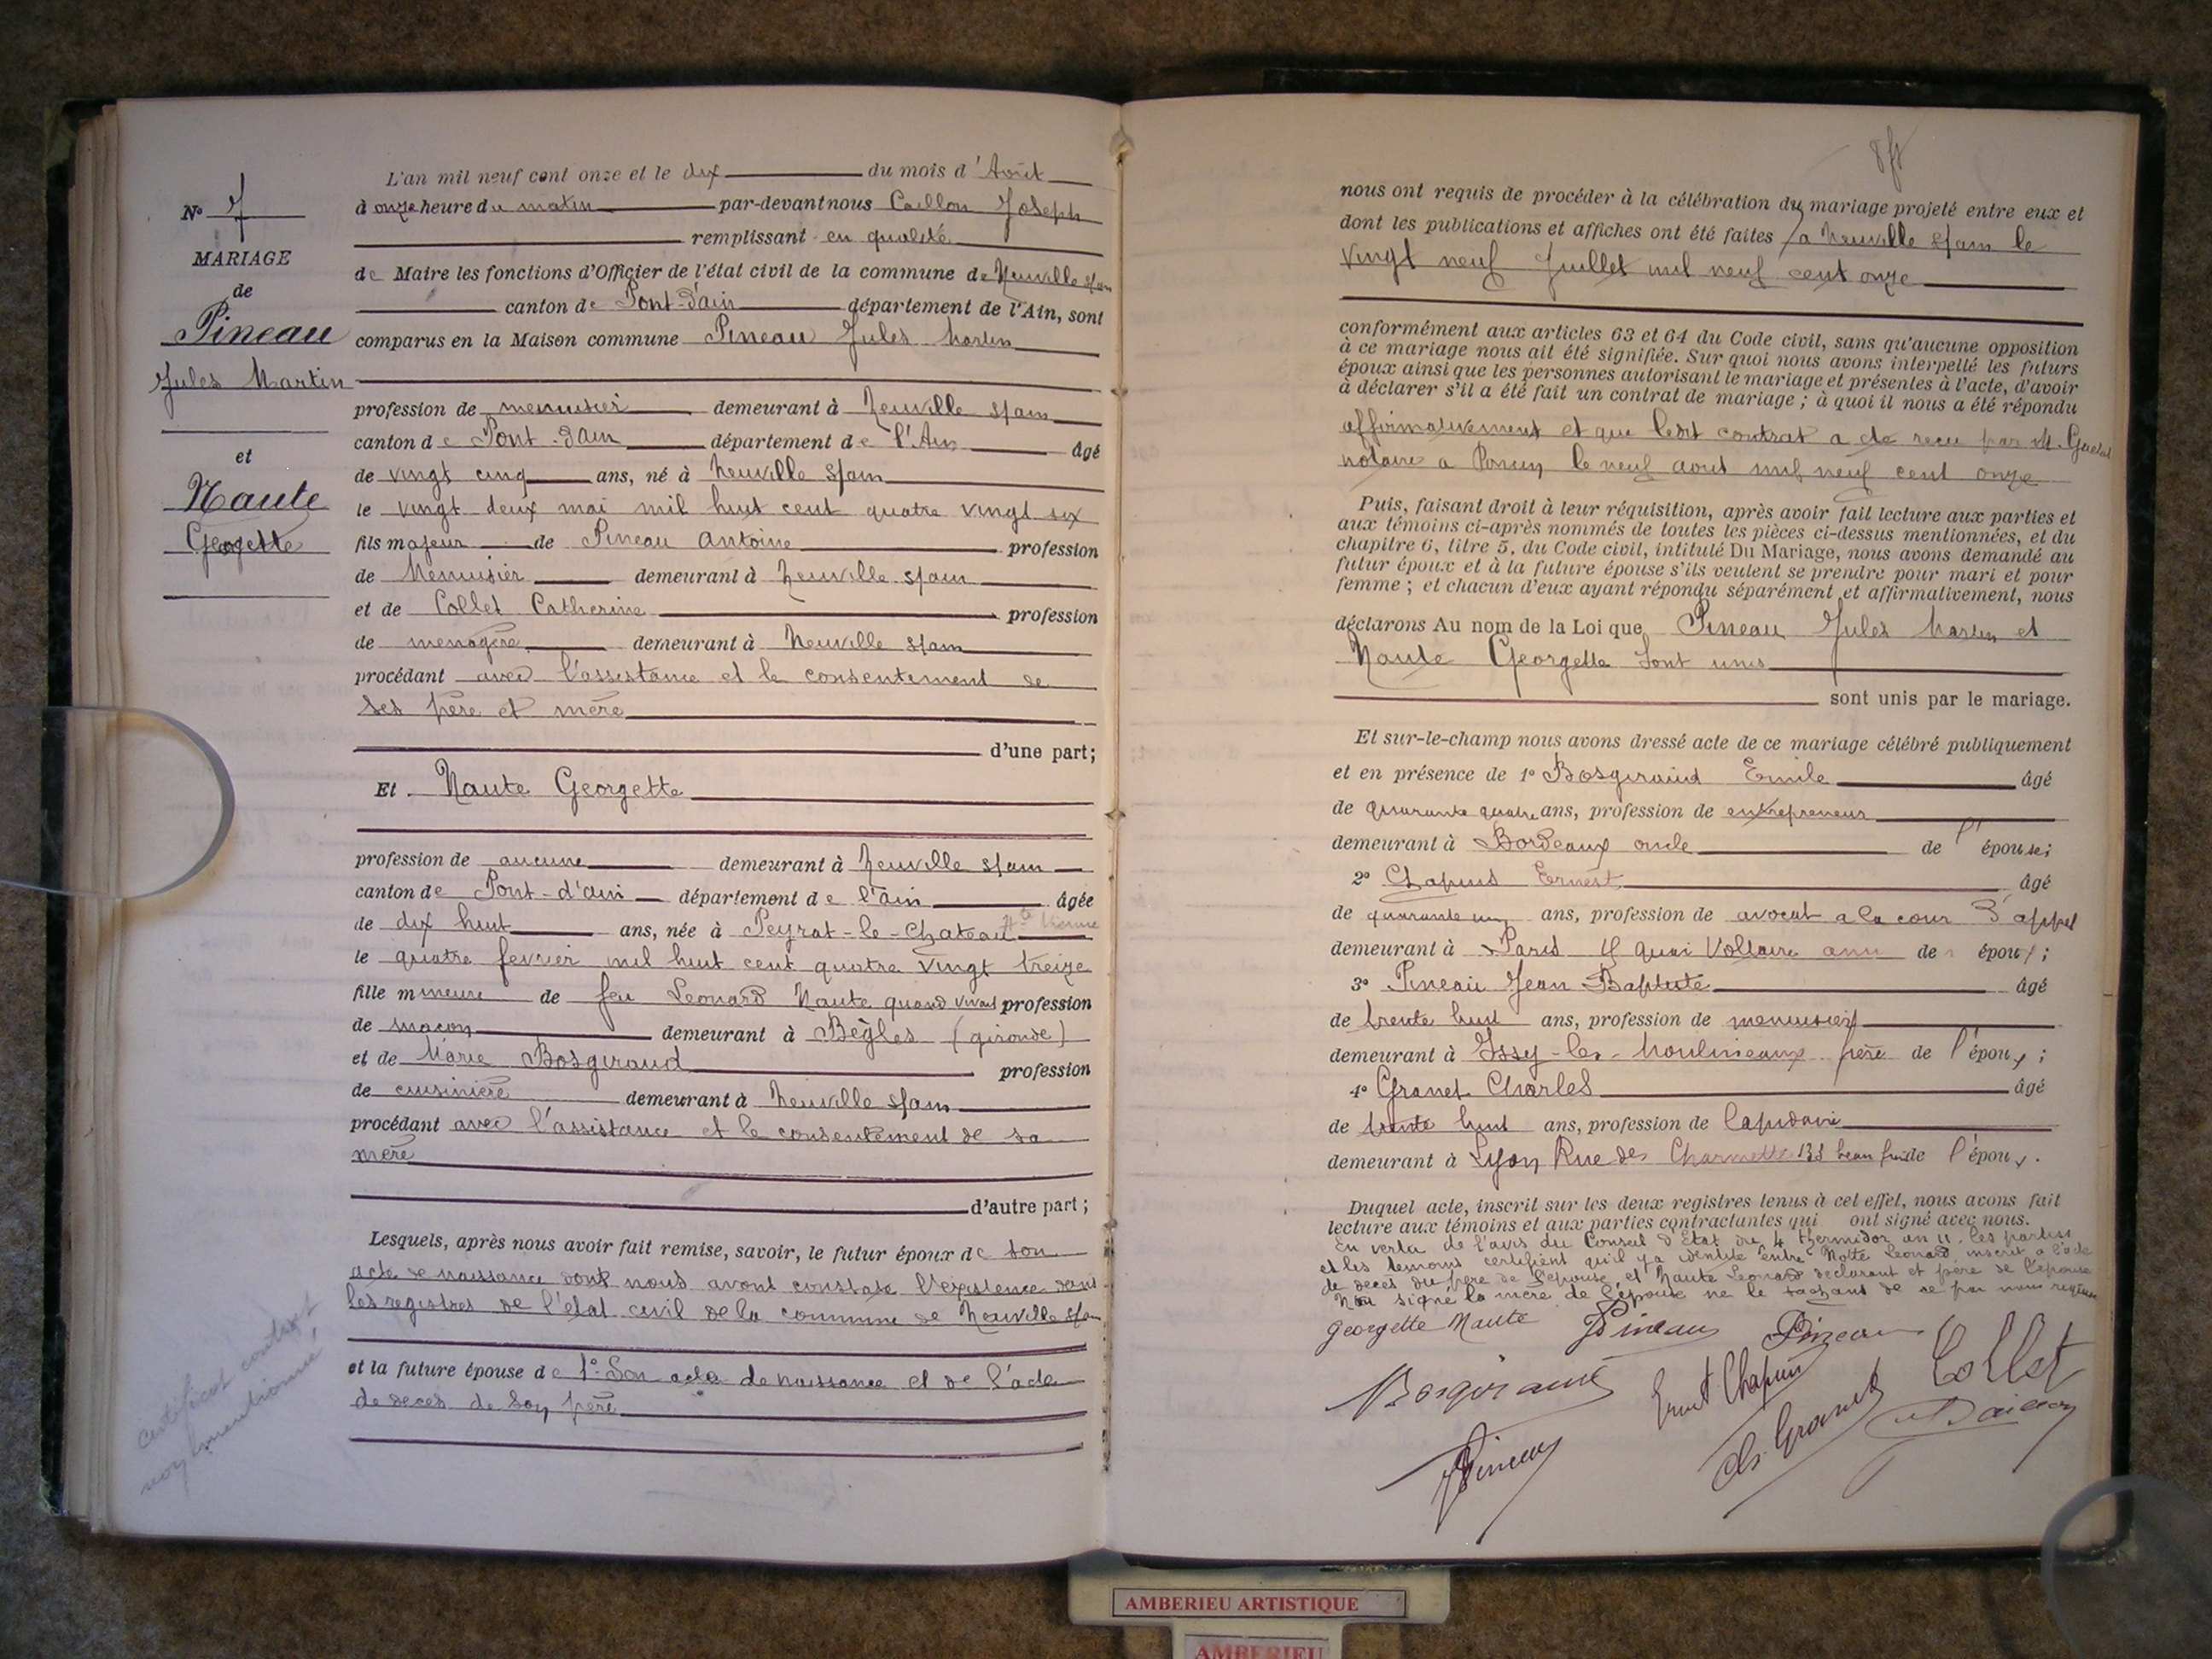 L'an mil neuf cent onze et le dix du mois d'Août
à onze heure du matin par-devant nous Caillon Joseph
remplissant en qualité
de Maire les fonctions d'Officier de l'état civil de la commune de Neuville s/ain
canton de Pont-d'ain département de l'Ain, sont
comparus en la Maison commune Pineau Jules Martin
profession de menuisier demeurant à Neuville s/ain
canton de Pont-d'ain département de l'Ain âgé
de vingt cinq ans, né à Neuville s/ain
le vingt deux mai mil huit cent quatre vingt six
fils majeur de Pineau Antoine profession
de Menuisier demeurant à Neuville s/ain
et de Collet Catherine profession
de menagère demeurant à Neuville s/ain
procédant avec l'assistance et le consentement de
ses père et mère
d'une part;
Et Naute Georgette
profession de aucune demeurant à Neuville s/ain
canton de Pont-d'ain département de l'ain âgée
de dix huit ans, née à Peyrat-le-Chateau Hte Vienne
le quatre fevrier mil huit cent quatre vingt treize
fille mineure de feu Leonard Naute quand vivait profession
de maçon demeurant à Bègles (gironde)
et de Marie Bosgiraud profession
de cuisinière demeurant à Neuville s/ain
procédant avec l'assistance et le consentement de sa
mère
d'autre part;
Lesquels, après nous avoir fait remise, savoir, le futur époux de son
acte de naissance dont nous avons constaté l'existence dans
les registres de l'état civil de la commune de Neuville s/ain
et la future épouse de 1° Son acte de naissance et de l'acte
de deces de son père
No 7
MARIAGE
de
Pineau
Jules Martin
et
Naute
Georgette
certificat contrat
non mentionné
nous ont requis de procéder à la célébration du mariage projeté entre eux et
dont les publications et affiches ont été faites a Neuville s/ain le
vingt neuf Juillet mil neuf cent onze
conformément aux articles 63 et 64 du Code civil, sans qu'aucune opposition
à ce mariage nous ait été signifiée. Sur quoi nous avons interpellé les futurs
époux ainsi que les personnes autorisant le mariage et présentes à l'acte, d'avoir
à déclarer s'il a été fait un contrat de mariage; à quoi il nous a été répondu
affirmativement et que ledit contrat a été recu par M.
notaire a Poncin le neuf aout mil neuf cent onze
Puis, faisant droit à leur réquisition, après avoir fait lecture aux parties et
aux témoins ci-après nommés de toutes les pièces ci-dessus mentionnées, et du
chapitre 6, titre 5, du Code civil, intitulé Du Mariage, nous avons demandé au
futur époux et à la future épouse s'ils veulent se prendre pour mari et pour
femme; et chacun d'eux ayant répondu séparément et affirmativement, nous
déclarons Au nom de la Loi que Pineau Jules Martin et
Naute Georgette sont unis
sont unis par le mariage.
Et sur-le-champ nous avons dressé acte de ce mariage célébré publiquement
et en présence de 1° Bosgiraud Emile âgé
de quarante quatre ans, profession de entrepreneur
demeurant à Bordeaux oncle de l'épouse;
2° Chapuis Ernest âgé
de quarante un ans, profession de avocat a la cour d'appel
demeurant à Paris 4 quai Voltaire ami de époux;
3° Pineau Jean Baptiste âgé
de trente huit ans, profession de menuisier
demeurant à Issy-les-Moulineaux frère de l'époux;
4° Granet Charles âgé
de trente huit ans, profession de lapidaire
demeurant à Lyon Rue des Charmettes beau frère de l'époux.
Duquel acte, inscrit sur les deux registres tenus à cet effet, nous avons fait
lecture aux témoins et aux parties contractantes qui ont signé avec nous.
En vertu de l'avis du Conseil d'Etat du 4 thermidor an 11. les parties
et les temoins certifient qu'il y a identité entre Notte Leonard inscrit a l'acte
de deces du père de l'epouse, et Naute Leonard declarant et père de l'épouse
Non signé la mère de l'épouse ne le sachant de ce par nous requise
georgette Naute Pineau Pineau
Bosgiraud Ernest Chapuis Collet
Pineau Ch. Granet Caillon
AMBERIEU ARTISTIQUE
AMBERIEU